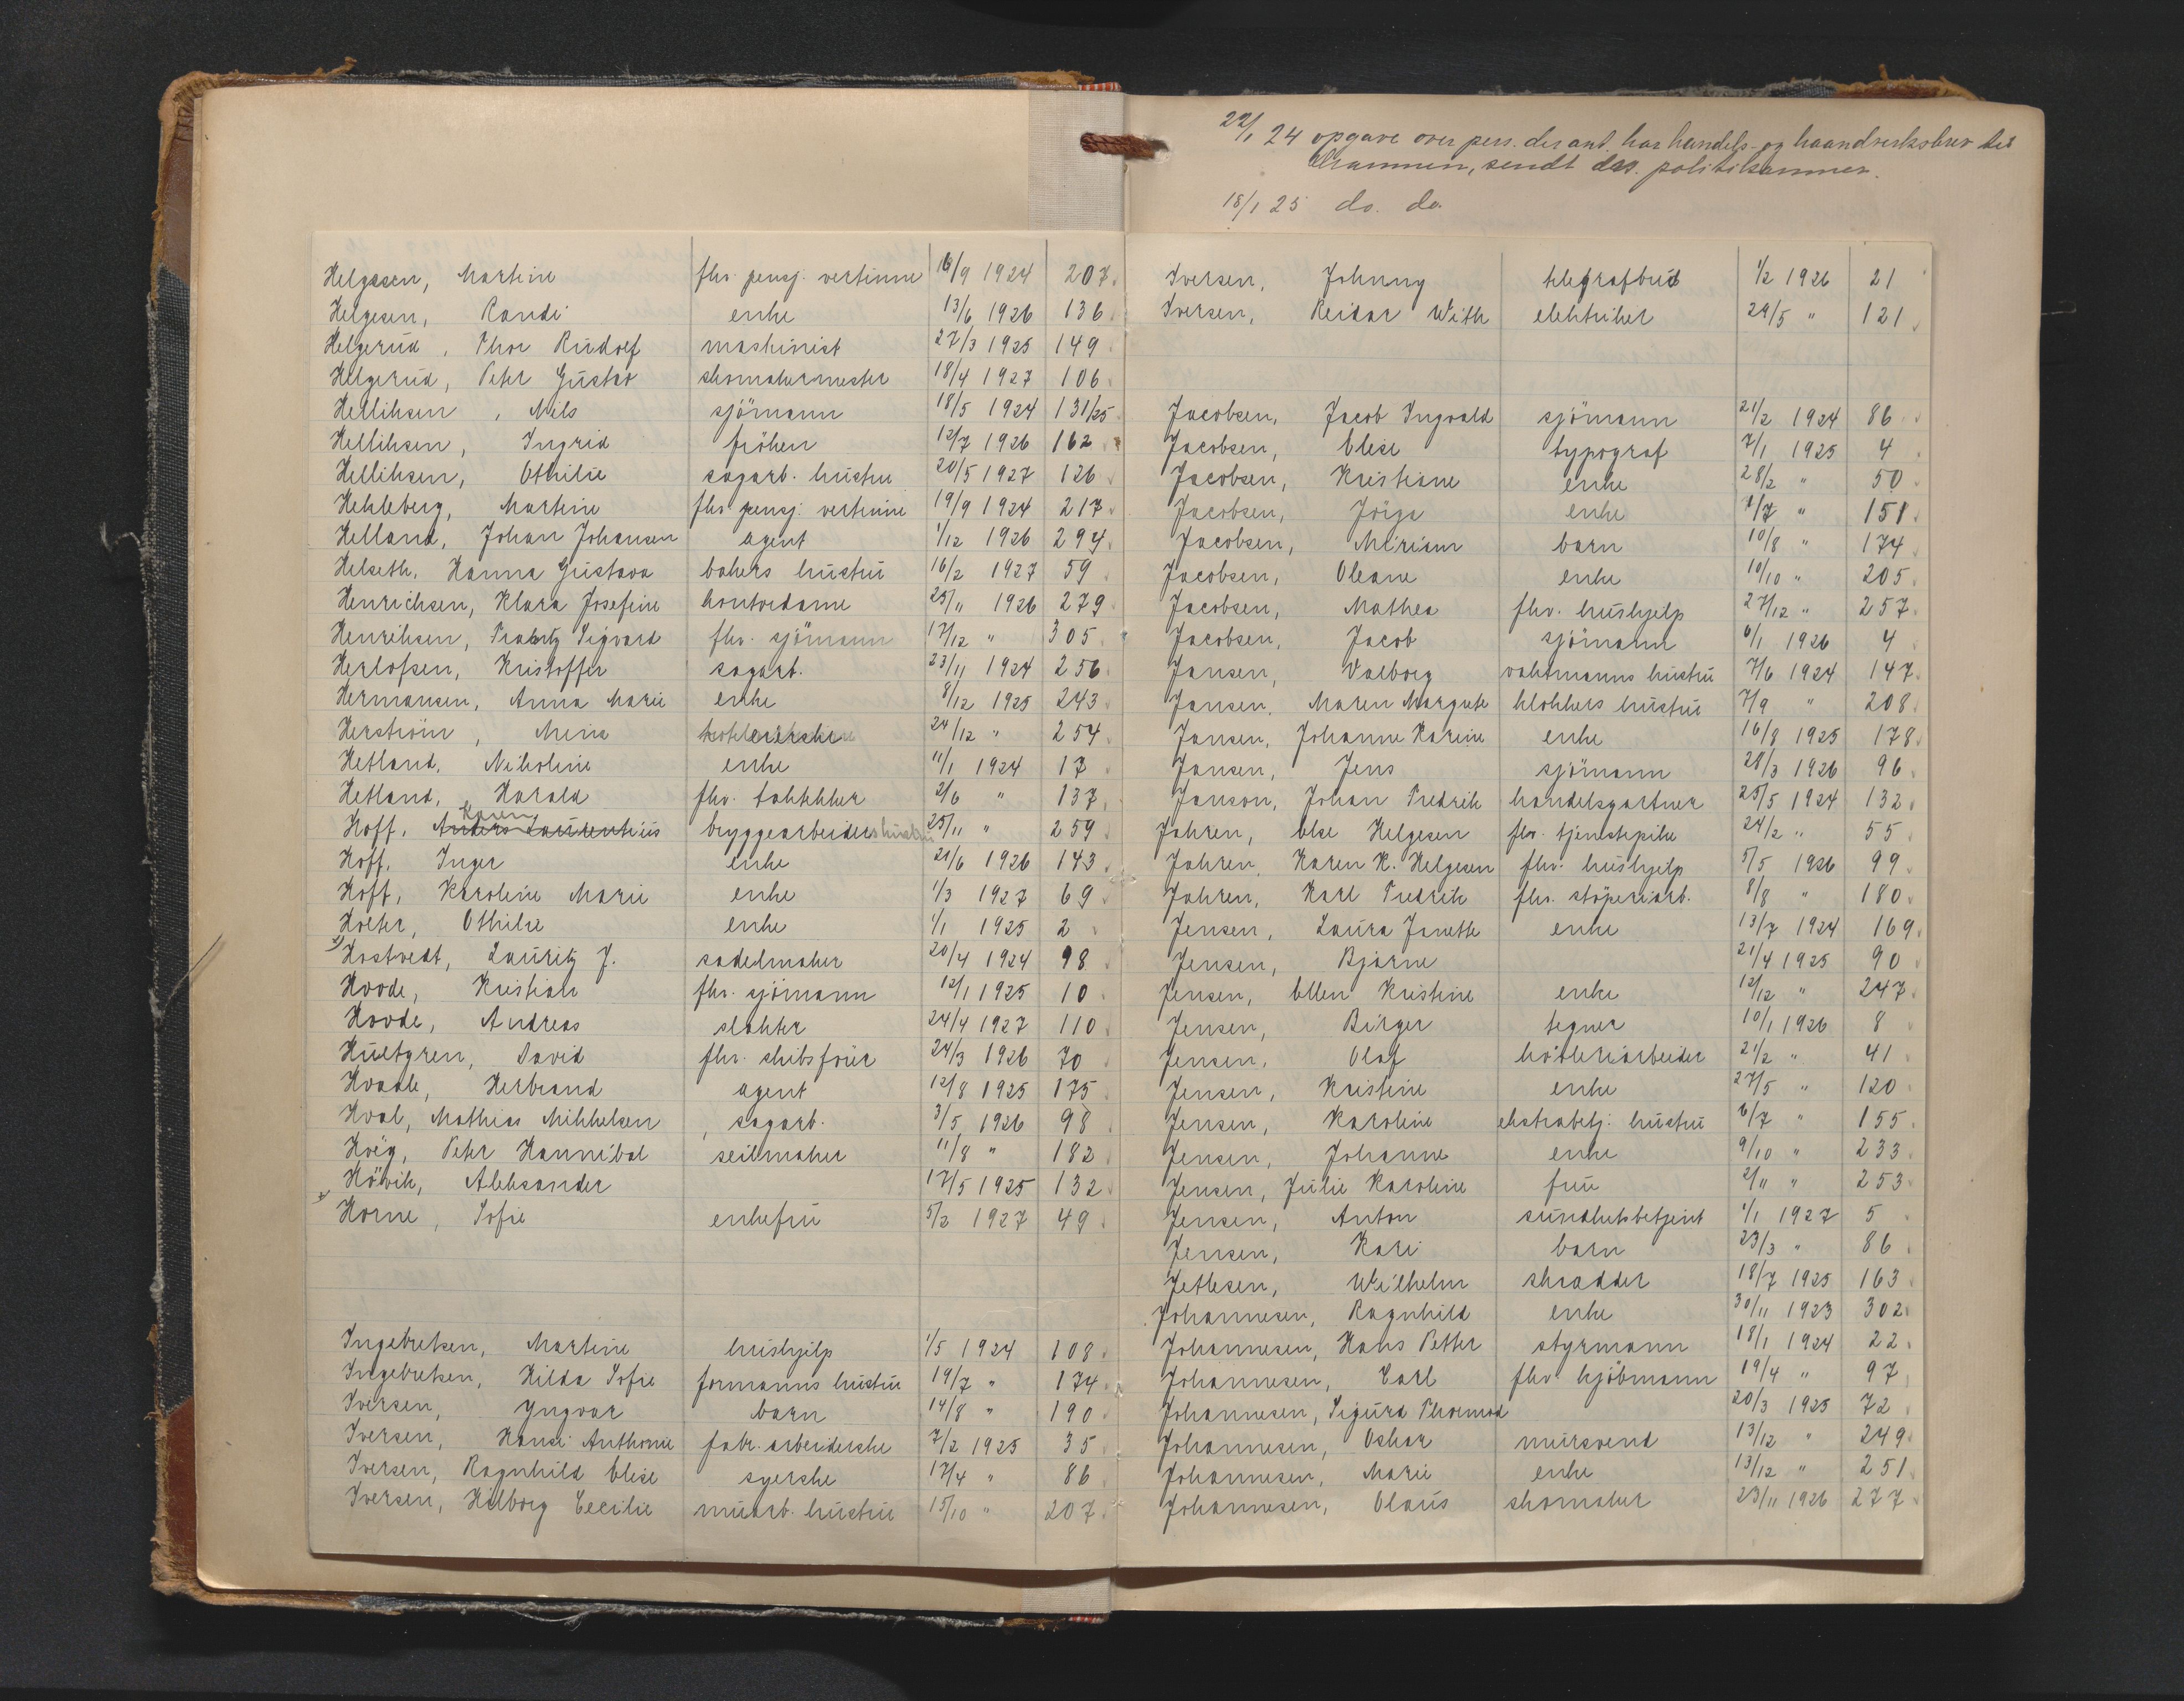 Helgesen, Martine fhv. pensj. vertinne 16/9 1924 207
Helgesen, Randi enke 13/6 1926 136
Helgerud, Thor Rudolf maskinist 27/3 1925 149
Helgerud, Peter Gustav skomakermester 18/4 1927 106
Helliksen, Nils sjömann 18/5 1924 131/25
Helliksen, Ingrid fröken 12/7 1926 162
Helliksen, Othilie sagarb. hustru 20/5 1927 126
Hekleberg, Martine fhv pensj. vertinne 19/9 1924 217
Helland, Johan Johansen agent 1/12 1926 294
Helseth, Hanna Gustava bakers hustru 16/2 1927 59
Henrichsen, Klara Josefine kontordame 25/11 1926 279
Henriksen, Sigvard fhv. sjömann 17/12 " 305
Herlofsen, Kristoffer sagarb. 23/11 1924 256
Hermansen, Anna Marie enke 8/12 1925 243
Herström, Mina 24/12 " 254
Hetland, Nikoline enke 11/1 1924 17
Hetland, Harald fhv. taktekker 2/6 " 137
Hoff, Anders Laurentius Karen bryggearbeiders hustru 25/11 " 259
Hoff, Inger enke 21/6 1926 143
Hoff, Karoline Marie enke 1/3 1927 69
Holter, Othilie enke 1/1 1925 2
x) Hostvedt, Lauritz J. sadelmaker 20/4 1924 98
Hovde, Kristian fhv. sjömann 12/1 1925 10
Hovde, Andreas slakter 24/4 1927 110
Hultgren, David fhv. skibsförer 24/3 1926 70
Hvaale, Herbrand agent 12/8 1925 175
Hval, Mathias Mikkelsen sagarb. 3/5 1926 98
Hvig, Peter Hannibal seilmaker 11/8 " 182
Hövik, Aleksander 17/5 1925 132
x Horne, Sofie enkefru 5/2 1927 49
Ingebretsen, Martine hushjelp 1/5 1924 108
Ingebretsen, Hilda Sofie formanns hustru 19/7 " 174
Iversen, Yngvar barn 14/8 " 190
Iversen, Hansi Anthonie fabr. arbeiderske 7/2 1925 35
Iversen, Ragnhild Elise syerske 17/4 " 86
Iversen, Hilborg Cecilie murarb. hustru 15/10 " 207
22/1 24 opgave over pers. der ant. har handels- og haandverksbrev til
Drammen, sendt dr. politikammer.
18/1 25 do. do.
Iversen, Johnny telegrafbud 1/2 1926 21
Iversen, Reidar With elektriker 29/5 " 121
Jacobsen, Jacob Ingvald sjömann 21/2 1924 86
Jacobsen, Elise typograf 7/1 1925 4
Jacobsen, Kristiane enke 28/2 " 50
Jacobsen, Jörga enke 1/7 " 151
Jacobsen, Miriam barn 10/8 " 174
Jacobsen, Oleane enke 10/10 " 205
Jacobsen, Mathea fhv. hushjelp 27/12 " 257
Jacobsen, Jacob sjömann 6/1 1926 4
Jansen, Valborg vaktmanns hustru 7/6 1924 147
Jansen, Maren Margrete klokkers hustru 7/9 " 208
Jansen, Johanne Karine enke 16/8 1925 178
Jansen, Jens sjömann 28/3 1926 96
Janson, Johan Fredrik handelsgartner 25/5 1924 132
Jahren, Else Helgesen fhv. tjenstepike 24/2 " 55
Jahren, Karen K. Helgesen fhv. hushjelp 5/5 1926 99
Jahren, Karl Fredrik fhv. stöperiarb. 8/8 " 180
Jensen, Laura Janette enke 13/7 1924 169
Jensen, Bjarne 21/4 1925 90
Jensen, Ellen Kristine enke 12/12 " 247
Jensen, Birger tegner 10/1 1926 8
Jensen, Olaf hövleriarbeider 21/2 " 41
Jensen, Kristine enke 27/5 " 120
Jensen, Karoline ekstrabetj. hustru 6/7 " 155
Jensen, Johanne enke 9/10 " 233
Jensen, Julie Karoline fru 2/11 " 253
Jensen, Anton sundhetsbetjent 1/1 1927 5
Jensen, Kari barn 23/3 " 86
Jetlesen, Wilhelm skrædder 18/7 1925 163
Johannesen, Ragnhild enke 30/11 1923 302
Johannesen, Hans Petter styrmann 18/1 1924 22
Johannesen, Carl fhv kjöbmann 19/4 " 97
Johannesen, Sigurd Thormod 20/3 1925 72
Johannesen, Oskar mursvend 13/12 " 249
Johannesen, Marie enke 13/12 " 251
Johannesen, Olaus skomaker 23/11 1926 277